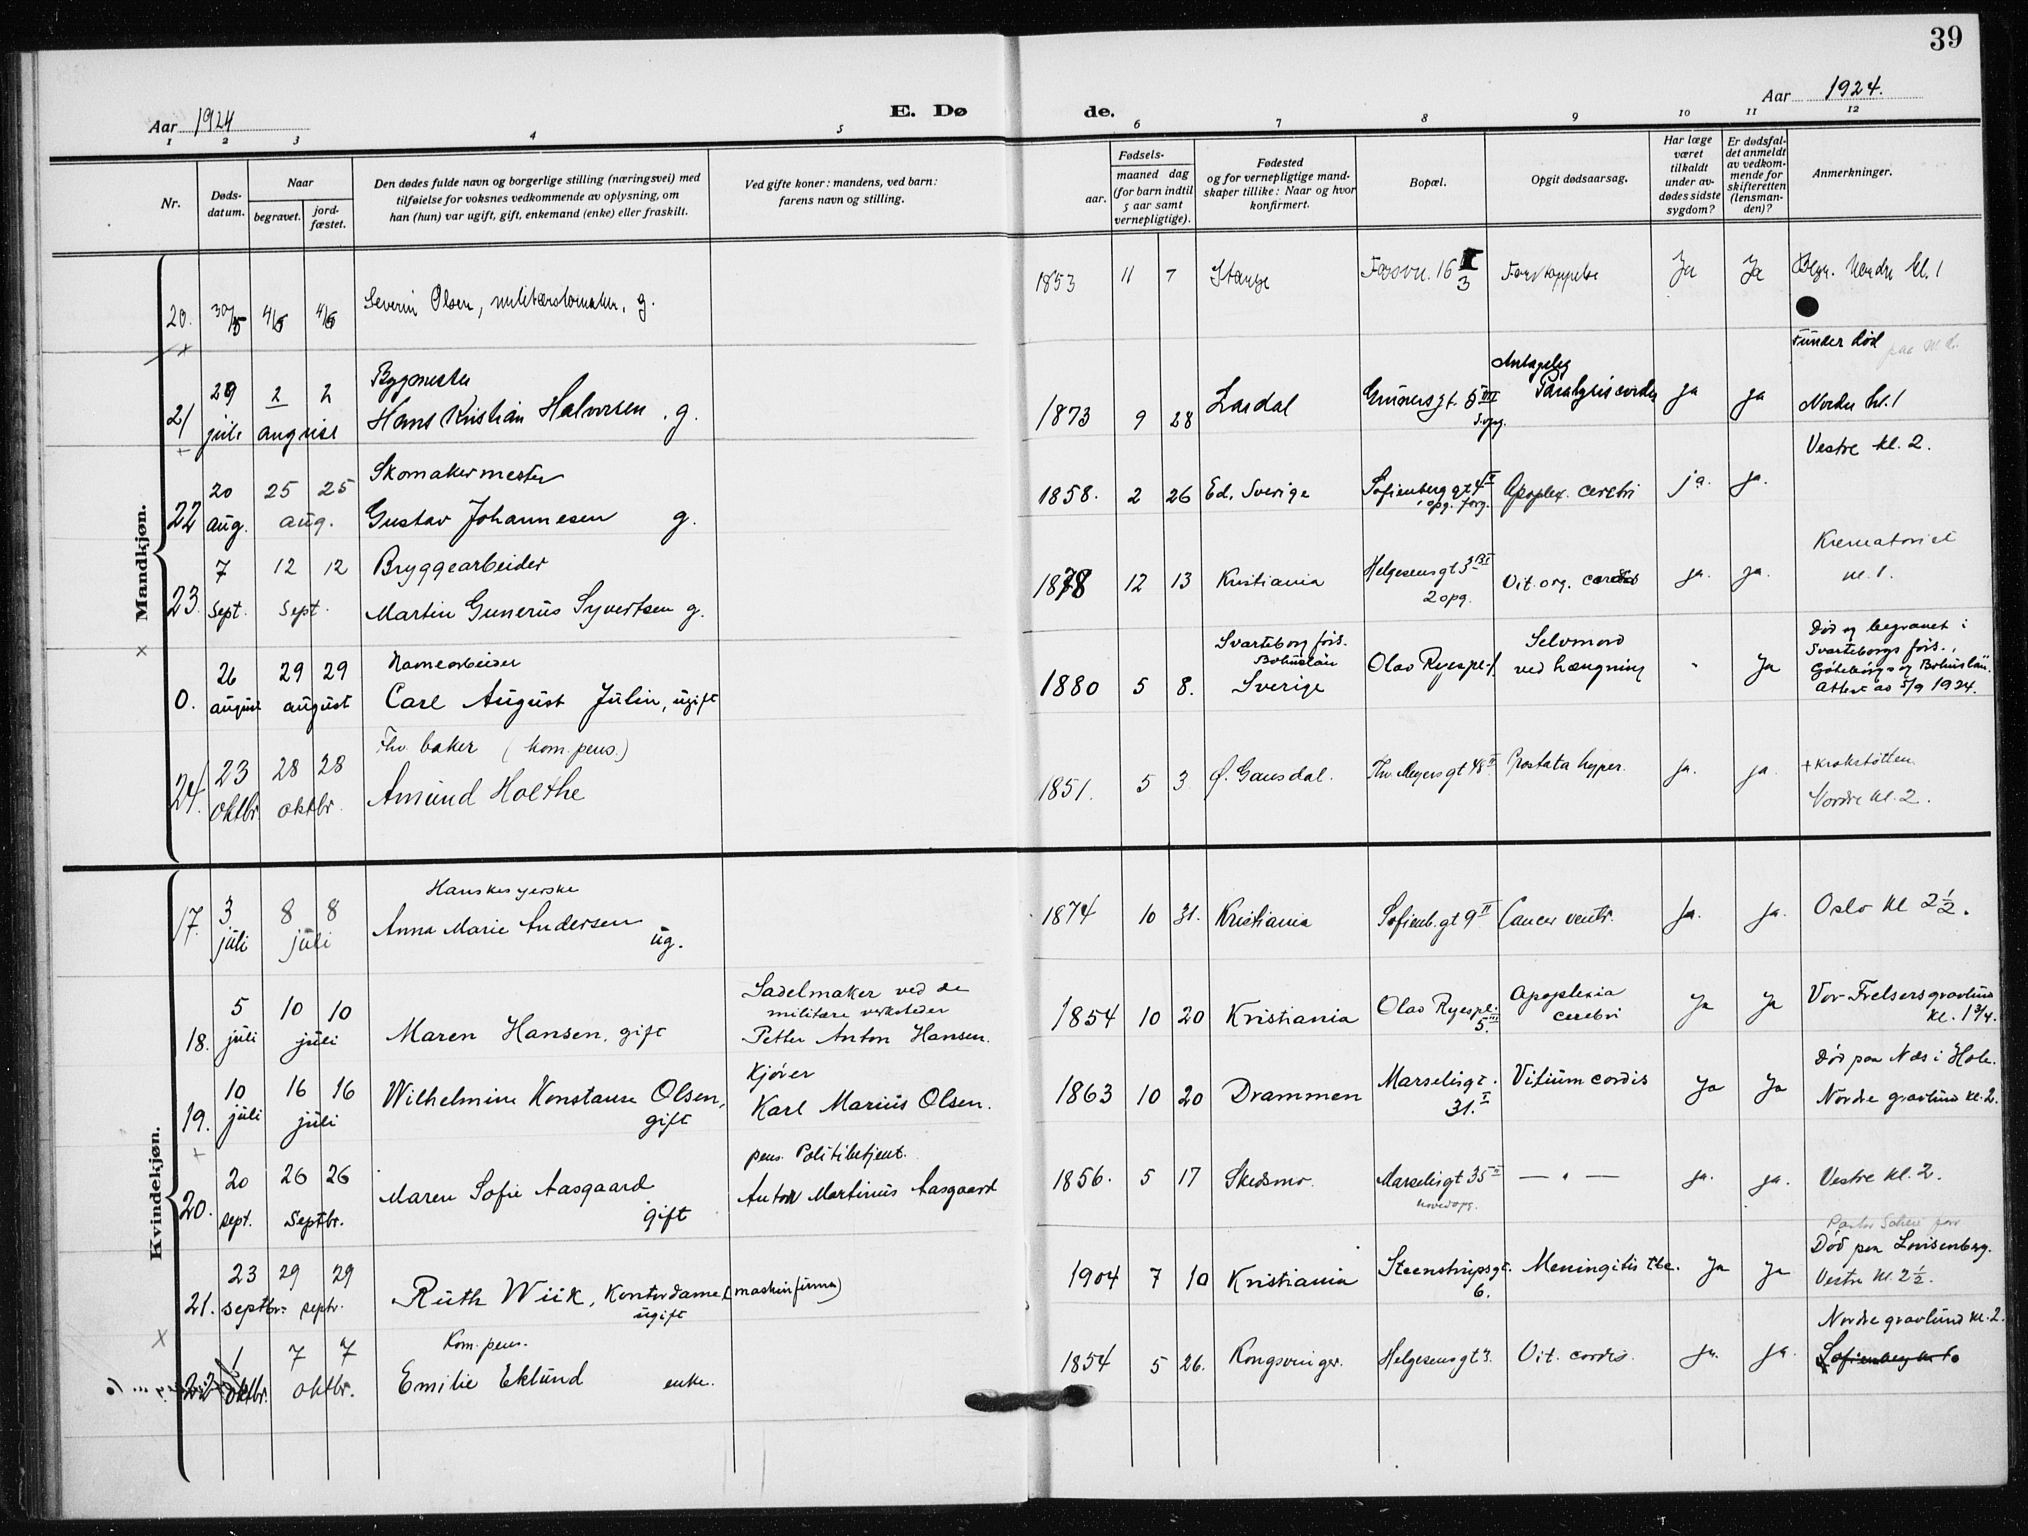 39
Aar 1924
E. Dø
de.
Aar 1924.
1 2 3 4 5 6 7 8 9 10 11 12
Nr.
Døds-
datum.
Naar
begravet.
jord-
fæstet.
Den dødes fulde navn og borgerlige stilling (næringsvei) med
tilføielse for voksnes vedkommende av oplysning, om
han (hun) var ugift, gift, enkemand (enke) eller fraskilt.
Ved gifte koner: mandens, ved barn:
farens navn og stilling.
Fødsels-
aar.
maaned dag
(for barn indtil
5 aar samt
vernepligtige).
Fødested
og for vernepligtige mand-
skaper tillike: Naar og hvor
konfirmert.
Bopæl.
Opgit dødsaarsag.
Har læge
været
tilkaldt
under av-
dødes sidste
sygdom?
Er dødsfal-
det anmeldt
av vedkom-
mende for
skifteretten
(lensman-
den)?
Anmerkninger.
Mandkjøn.
20. 30/5 4/6 4/6 Severin Olsen, g. 1853 11 7 Stange 16 3 Forstoppelse Ja Ja Nordre kl. 1
død
21 29 juli 2 2 august
Bygmester
Hans Kristian Halvorsen . g. 1873 9 28 Lardal Grünersgt. 5 III
Antagelig
Paralysis cordis ja ja Nordre kl. 1
22 20 aug. 25 25 aug.
Skomakermester
Gustav Johannesen g. 1858. 2 26 Ed, Sverige Sofienberg gt 4 II
opg. forg.
Apoplex. cerebri ja. ja.
Vestre kl. 2.
23. 7 sept. 12 12 sept.
Bryggearbeider
Martin Gunerius Syvertsen g. 1878 12 13 Kristiania Helgesensgt 3
2 opg.
Vit. org. cordis ja. ja.
Krematoriet
kl. 1.
0. 26 august 29 29 august
Havnearbeider
Carl August Julin, ugift 1880 5 8.
Svarteborg førs.
Bohuslän
Sverige
Olav Ryespl. 1.
Selvmord
ved hængning - Ja
Død og begravet i
Svarteborgs førs.,
Göteborgs og Bohuslän.
Attest av 5/9 1924.
24. 23 oktbr. 28 28 oktbr.
Fhv. baker (kom. pens.)
Amund Holthe 1851. 5 3. Ø. Gausdal. Thv Meyersgt 48 II Prostata hyper. ja. ja.
+ Krokstøtten
Nordre kl. 2.
Kvindekjøn.
17. 3 juli 8 8 juli
Hanskesyerske
Anna Marie Andersen
ug. 1874 10 31. Kristiania Sofienb. gt 9 II Cancer ventr. Ja. ja. Oslo kl 2 1/2.
18. 5 juli 10 10 juli
Maren Hansen, gift
Sadelmaker ved de
militære verksteder
Petter Anton Hansen. 1854 10 20 Kristiania Olav Ryespl.
5. III
Apoplexia
cerebri Ja Ja
Vor Frelsers gravlund
kl. 1 3/4.
19. 10 juli 16 16 juli
Wilhelmine Konstanse Olsen,
gift
Kjører
Karl Marius Olsen. 1863 10 20 Drammen Marselisgt.
31. I
Vitium cordis Ja Ja
Død paa Næs i Hole.
Nordre gravlund kl. 2.
20. 20 sept. 26 26 septbr.
Maren Sofie Aasgaard
gift
pens. Politibetjent.
Anton Martinius Aasgaard 1856. 5 17 Skedsmo. Marselisgt 35 II
hovedopg.
— " — ja. ja. Vestre kl. 2.
21. 23 septbr. 29 29 septr.
Ruth Wiik, Kontordame (maskinfirma)
ugift 1904 7 10 Kristiania Steenstrupsgt.
6.
Meningitis tbc. Ja Ja
Død paa Lovisenberg.
Vestre kl. 2 1/2.
22 1 oktbr. 7 7 oktbr.
Kom. pens.
Emilie Eklund enke. 1854 5 26. Kongsvinger. Helgesensgt 3. Vit. cordis. ja. ja.
Nordre gravlund kl. 2.